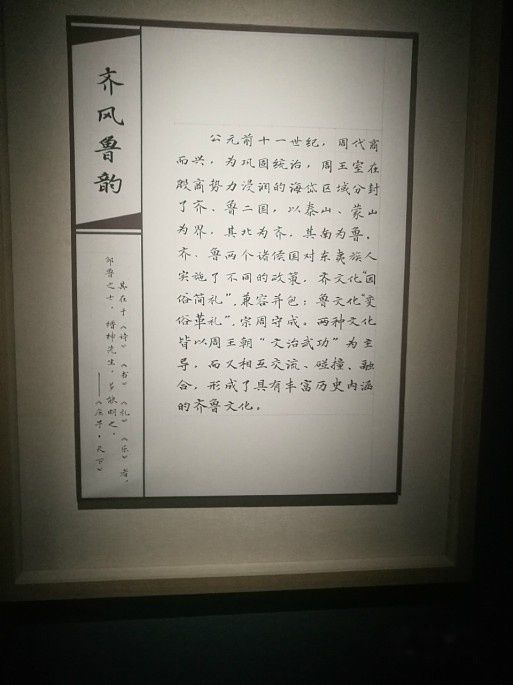 齐风鲁韵
其在于《诗》《书》《礼》《乐》者,
邹鲁之士,搢绅先生,多能明之。
——《庄子·天下》
公元前十一世纪,周代商
而兴,为巩固统治,周王室在
殷商势力浸润的海岱区域分封
了齐、鲁二国,以泰山、蒙山
为界,其北为齐,其南为鲁。
齐、鲁两个诸侯国对东夷族人
实施了不同的政策,齐文化“因
俗简礼”,兼容并包;鲁文化“变
俗革礼”,宗周守成。两种文化
皆以周王朝“文治武功”为主
导,而又相互交流、碰撞、融
合,形成了具有丰富历史内涵
的齐鲁文化。